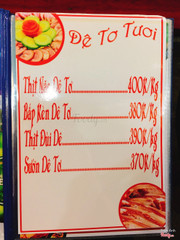 Dê Tơ Tươi
Thịt Nạc Dê Tơ 400K/Kg
Bắp Kèn Dê Tơ 380K/Kg
Thịt Đùi Dê 390K/Kg
Sườn Dê Tơ 370K/Kg